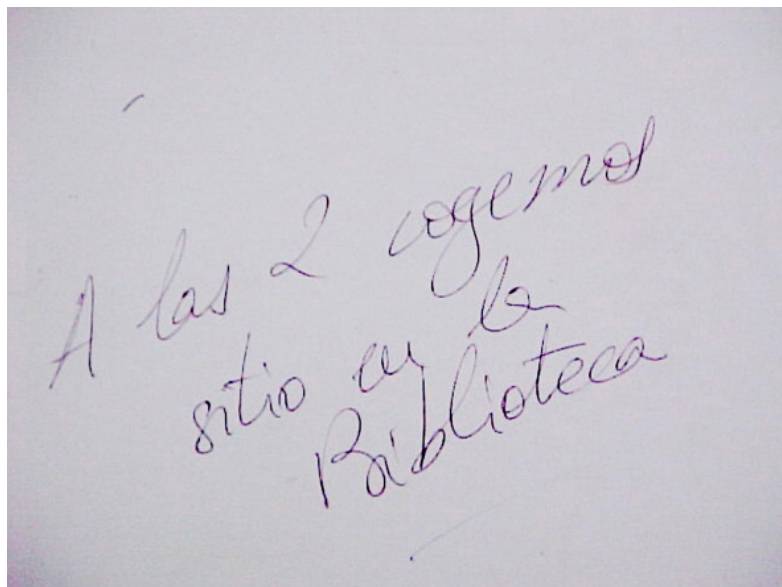 A las 2 cogemos
sitio en la
Biblioteca